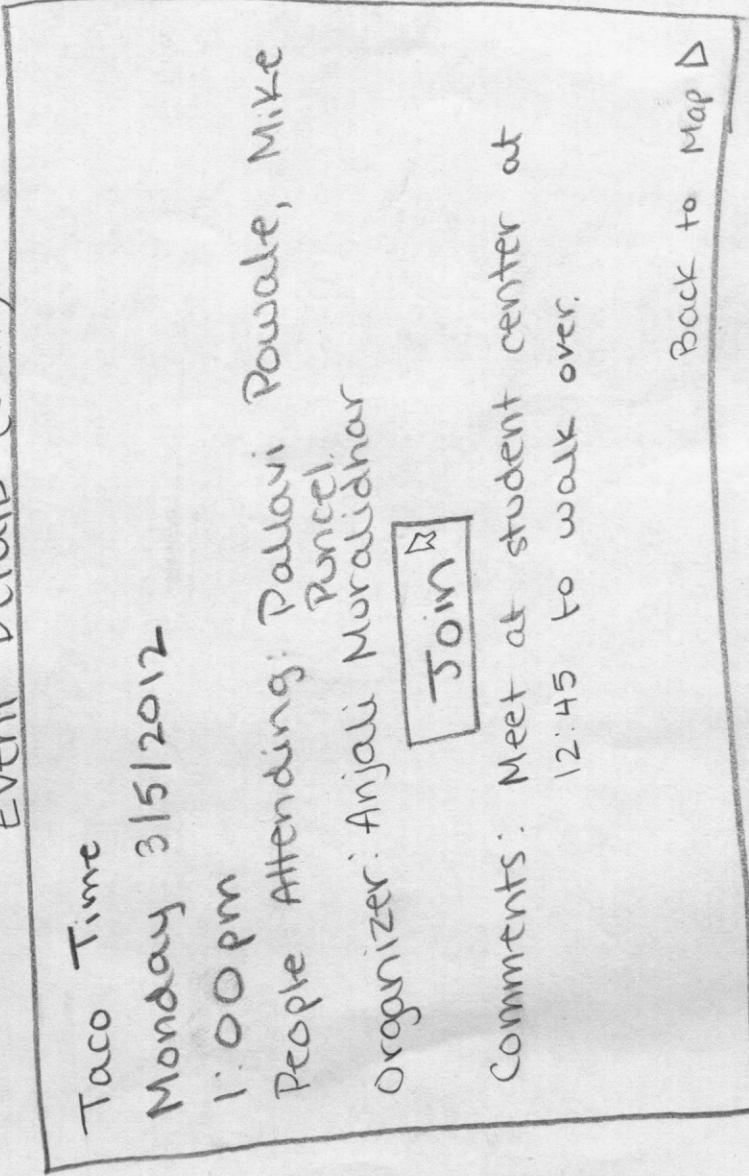 Event Details
Taco Time
Monday 3/5/2012
1:00pm
People Attending: Pallavi Powale, Mike
Puncel.
Organizer: Anjali Muralidhar
Join
Comments: Meet at student center at
12:45 to walk over.
Back to Map